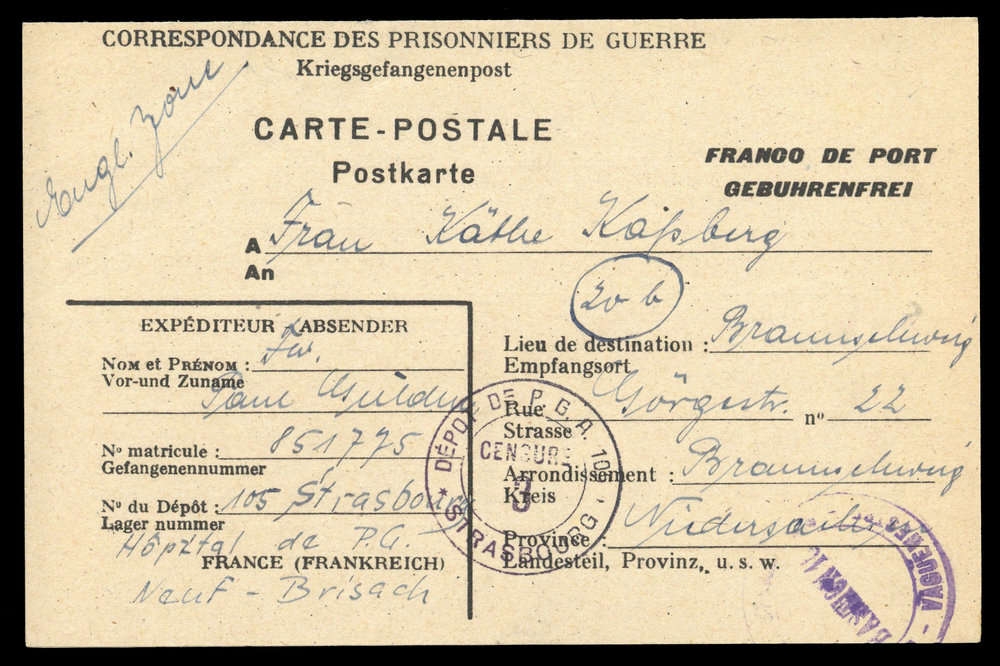 CORRESPONDANCE DES PRISONNIERS DE GUERRE
Kriegsgefangenenpost
Engl. Zone
CARTE-POSTALE
Postkarte
FRANCO DE PORT
GEBUHRENFREI
A Frau Käthe Kaßberg
An
20 b
EXPÉDITEUR / ABSENDER
Nom et Prénom : Fw.
Vor-und Zuname
Paul
Nº matricule : 851775
Gefangenennummer
Nº du Dépôt : 105 Strasbourg
Lager nummer
Hôpital de P.G.
FRANCE (FRANKREICH)
Neuf-Brisach
Lieu de destination : Braunschweig
Empfangsort
Rue Görgestr. nº 22
Strasse
Arrondissement : Braunschweig
Kreis
Province : Niedersachsen
Landesteil, Provinz, u. s. w.
DÉPOT DE P.G.A. 105
CENSURE
3
* STRASBOURG